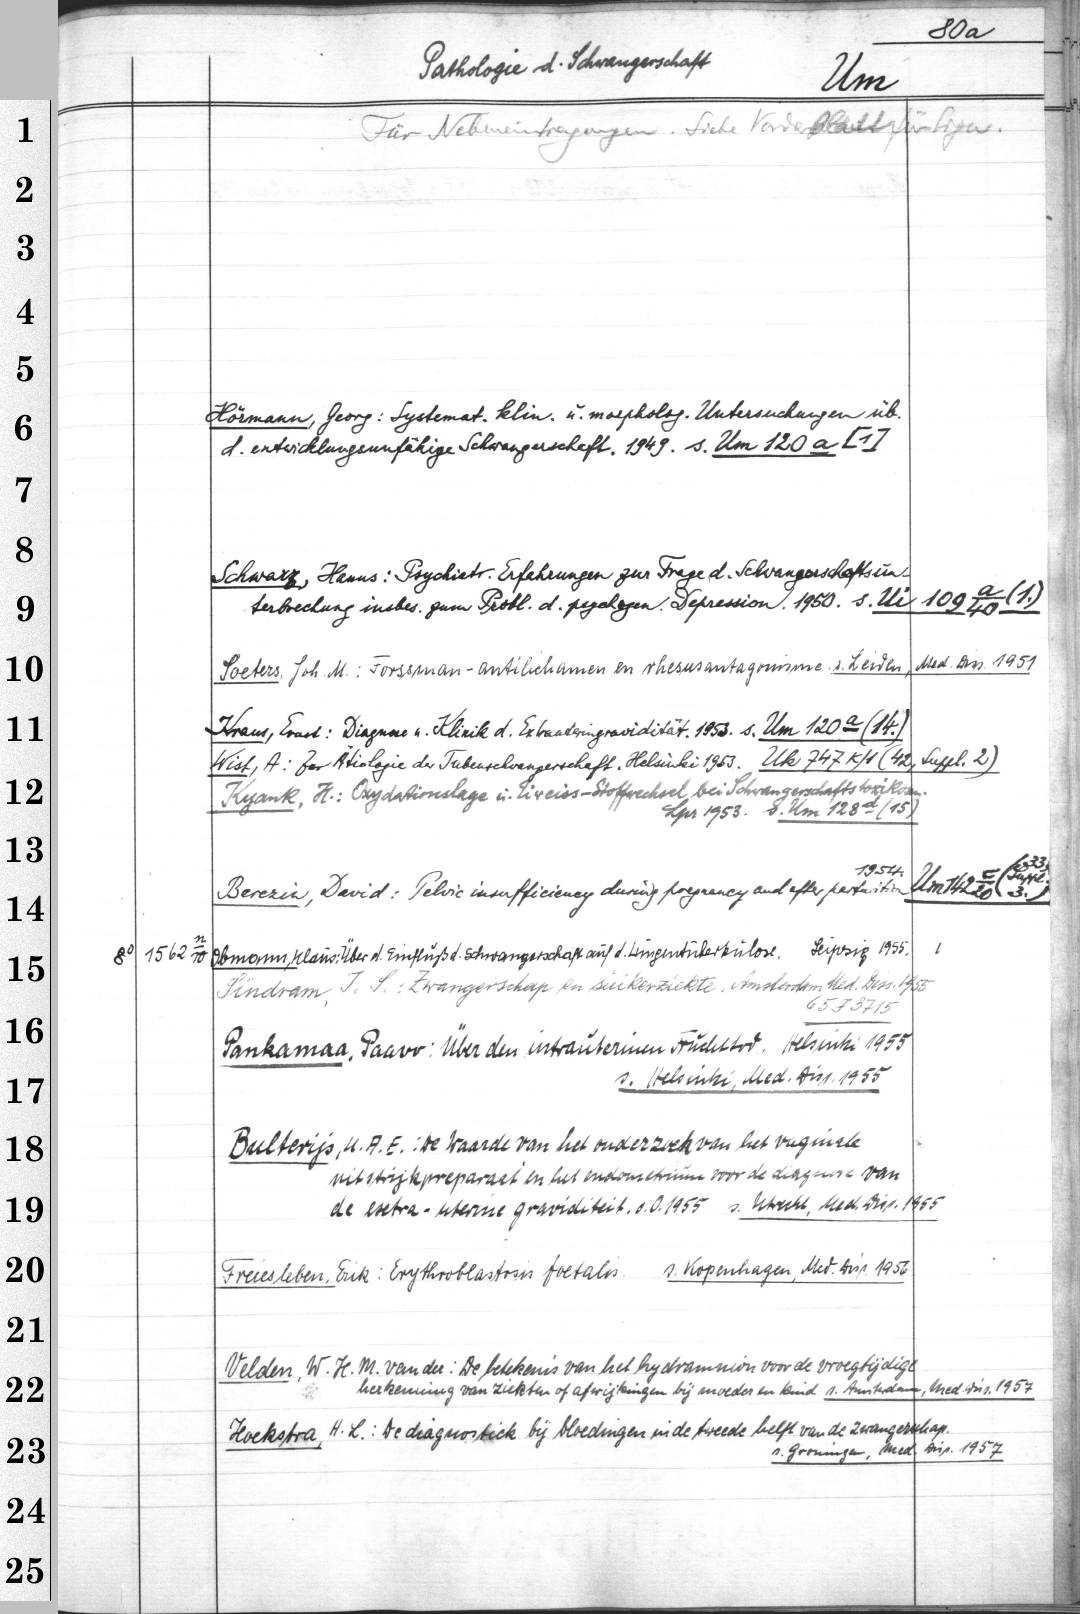 80a
Pathologie d. Schwangerschaft Um
1 Für Nebeneintragungen. Siehe Vorderblatt für Sign.
2
3
4
5
6 Hörmann, Georg: Systemat. klin. u. morpholog. Untersuchungen üb.
d. entwicklungsunfähige Schwangerschaft. 1949. s. Um 120 a [1]
7
8
Schwarz, Hanns: Psychiatr. Erfahrungen zur Frage d. Schwangerschaftsun-
9 terbrechung insbes. zum Probl. d. psychogen. Depression. 1950. s. Ui 109 a/40 (1.)
10 Soeters, Joh. M.: Forssman-antilichamen en rhesusantagonisme. s. Leiden, Med. Diss. 1951
11 Kraus, Ernst: Diagnose u. Klinik d. Extrauteringravidität. 1953. s. Um 120 a (14.)
Wist, A: Zur Ätiologie der Tubenschwangerschaft. Helsinki 1953. Uk 747 k/1 (42, Suppl. 2)
12 Kyank, H.: Oxydationslage u. Eiweiss-Stoffwechsel bei Schwangerschaftstoxikosen.
Lpz 1953. s. Um 128 d (15)
13
1954.
14 Berezin, David: Pelvic insufficiency during pregnancy and after parturition Um 142 c/20 (33, Suppl. 3.)
8° 1562 n/10 Obmann, Klaus: Über d. Einfluß d. Schwangerschaft auf d. Lungentuberkulose. Leipzig 1955. 1
15 Sindram, I. S.: Zwangerschap en suikerziekte. Amsterdam Med. Diss. 1955
6573715
16 Pankamaa, Paavo: Über den intrauterinen Fruchttod. Helsinki 1955
17 s. Helsinki, Med. Diss. 1955
18 Bulterijs, M. A. E.: De Waarde van het onderzoek van het vaginale
uitstrijkpreparaat en het endometrium voor de diagnose van
19 de extra-uterine graviditeit. s.O. 1955 s. Utrecht, Med. Diss. 1955
20 Freiesleben, Erik: Erythroblastosis foetalis. s. Kopenhagen, Med. Diss. 1956
21
Velden, W. H. M. van der: De betekenis van het hydramnion voor de vroegtijdige
22 herkenning van ziekten of afwijkingen bij moeder en kind s. Amsterdam, Med. Diss. 1957
Hoekstra, H. L.: De diagnostiek bij bloedingen in de tweede helft van de zwangerschap.
23 s. Groningen, Med. Diss. 1957
24
25